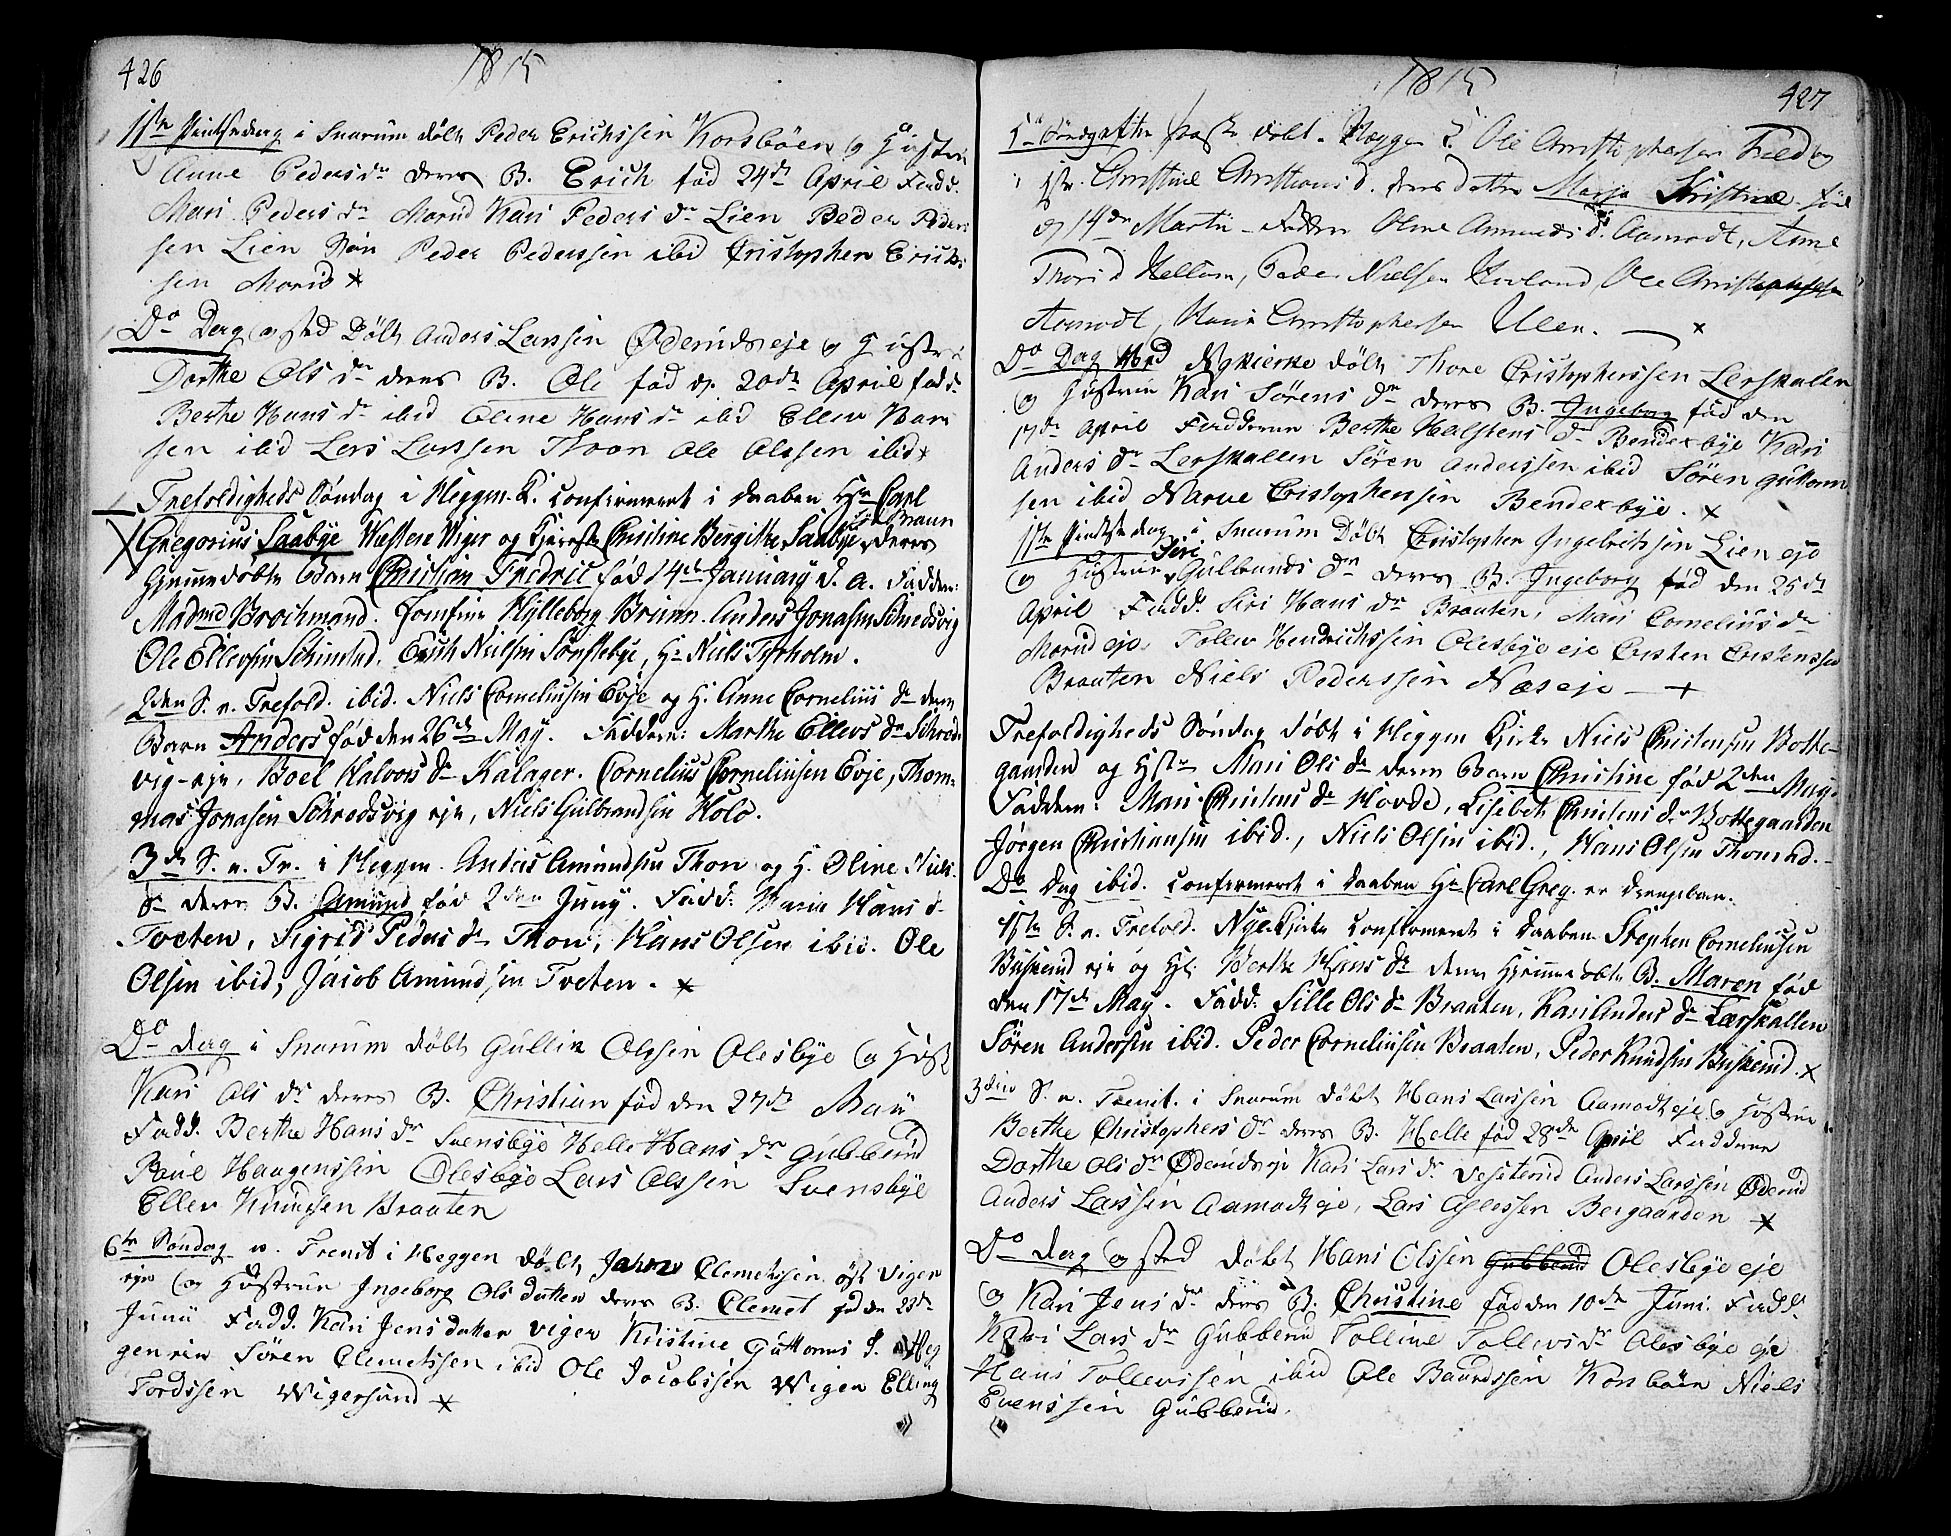 426
1815
11te Pintsedag i Snarum døbt Peder Erichssen Korsbøen og Hustrue
Anne Pedersdr deres B. Erich fød 24de April Fadd.
Mari Pedersdr Morud Kari Pedersdr Lien Peder Peder
sen Lien Peder Pederssen ibid Cristopher Erichs
sen Morud
Do Dag og sted Døbt Anders Larssen Øderudseje og Hustrue
Dorthe Olsdr deres B. Ole fød d. 20de April fadd.
Berthe Hansdr ibid Oline Hansdr ibid Ellev Han
sen ibid Lars Larssen Thoon Ole Olssen ibid
Trefoldigheds Søndag i Heggen K. confirmeret i Daaben Hr Carl
Gregorius Saabye Westere Wiger og Kjereste Christine Bergitte Saabye fød Braun deres
hjemmedøbte Barn Christian Fredric fød 14de January d. a. Fadder:
Madmd Brochmand. Jomfrue Hylleborg Brunn. Anders Jonasen Schredsvig
Ole Ellevsen Schinstad, Erich Nielsen Sønstebye, Hr Niels Tyrholm.
2den S. e. Trefold. ibid. Niels Corneliusen Evje og H. Anne Corneliidr deres
Barn Anders fød den 26de May. Faddere: Marthe Ellevsdr Schreds
vig-eje, Boel Halvorsdr Kalager. Cornelius Corneliusen Evje, Thom-
mas Jonasen Schredsvig eje, Niels Gulbrandsen Hole.
3de S. e. Tr. i Heggen. Anders Amundsen Thon og H. Oline Niels
dr deres B. Amund fød 2den Juny. Fadd: Maria Hansd.
Tveten, Sigrid Pedersdr Thon, Hans Olsen ibid. Ole
Olsen ibid; Jacob Amundsen Tveten.
Do dag i Snarum døbt Gullik Olssen Olesbye og Hust
Kari Olsdr deres B. Christian fød den 27de Maii
Fadd. Berthe Hansdr Svensbye Helle Hansdr Gubberud
Poul Haagenssen Olesbye Lars Olssen Svensbye
Ellev Knudsen Braaten
6te Søndag e. Trenit i Heggen døbt Clemetssen øst Vigen
eje og Hustrue Ingeborg Olsdatter deres B. Clemet fød den 23de
Junii Fadd. Kari Jensdatter Viger Kristine Guttormsd. Heg
gen eie Søren Clemetssen ibid Ole Jacobssen Wigen Elling
Tordssen Wigersund
427
1815
5te Søndag efter Paaske døbt. Heggen K. Ole Christophersen
Hstr. Christine Christiansd. deres datter Maria Kristine fød
d. 14de Martii - Faddere Oline Amundsd. Aamodt, Anne
Thorsd Hellum, Peder Nielsen Hovland, Ole Christophersen
Aamodt, Hans Christophersen Ulen.
Do Dag Ved Nykierke døbt Thore Cristopherssen Lerskalen
og Hustrue Kari Sørensdr deres B. Ingeborg fød den
17de April Fadderne Berthe Halstensdr Bendexbye Kari
Andersdr Lerskallen Søren Anderssen ibid Søren Guttorm
sen ibid Narve Cristophersen Bendexbye.
11te Pindsedag i Snarum Døbt Christopher Ingebritssen Lien eje
og Hustrue Siri Gulbrandsdr deres B. Ingeborg fød den 25de
April Fadd. Siri Hansdr Braaten, Mari Corneliusdr
Morudeje Tollev Hendrichssen Olesbye eje Cristen Cristenssen
Braaten Niels Pederssen Næseje
Trefoldigheds Søndag døbt i Heggen Kirke Niels Christensen Botte-
gaarden og Hstr Mari Olsdr deres Barn Christine fød 2den May
Faddere: Mari Christensdr Hovde, Lisebet Christensdr Bottegaarden
Jørgen Christiansen ibid., Niels Olsen ibid., Hans Olsen Thomrud.
Do Dag ibid. confermeret i Daaben Hr Carl Greg. er drengebarn.
1ste S. e. Trefold. Nye-Kirke confirmeret i Daaben Stephen Corneliusen
Buskerud eje og Hst. Berthe Hansdr deres hjemmedøbte B. Maren fød
den 17de May. Fadd: Sille Olsdr Braaten, Kari Andersdr Lærskallen
Søren Andersen ibid. Peder Corneliusen Braaten, Peder Knudsen Buskerud.
3die S. e. Trenit. i Snarum døbt Hans Larssen Aamodt eje og Hustrue
Berthe Christophersdr deres B. Helle fød 28de April Faddere
Dorthe Olsdr Øderudseje Kari Larsdr Anders Larssen Øderud
Anders Larssen Aamodteje, Lars Bergaarden
Do dag og sted døbt Hans Olssen Gubberud Olesbye eje
og Kari Jensdr deres B. Christine fød den 10de Juni Fadd.
Kari Larsdr Gubberud Tolline Tollevsdr Olesbye eje
Hans Tollevssen ibid Ole Baardssen Korsbøen Niels
Evenssen Gubberud.